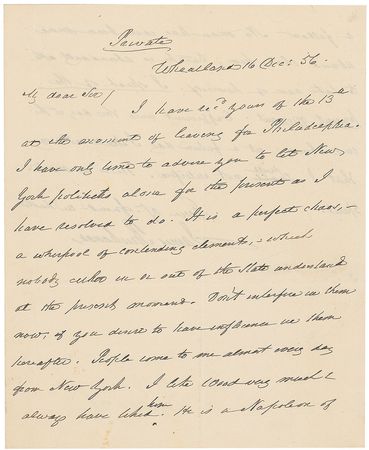 Private
Wheatland 16 Dec: 56.
My dear Sir/
I have rec'd yours of the 13th
at the moment of leaving for Philadelphia.
I have only time to advise you to let New
York politicks alone for the present as I
have resolved to do. It is a perfect chaos, –
a whirpool of contending elements, – which
nobody either in or out of the State understand
at the present moment. Don't interfere in them
now, if you desire to have influence in them
hereafter. People come to me almost every day
from New York. I like Wood very much &
always have liked him. He is a Napoleon of